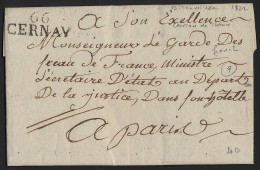 66
CERNAY
A Son Exellence
Monseigneur Le Garde Des
Sceau de France, Ministre
Sécretaire D'état au Départ
De la justice, Dans son hôtelle
A paris